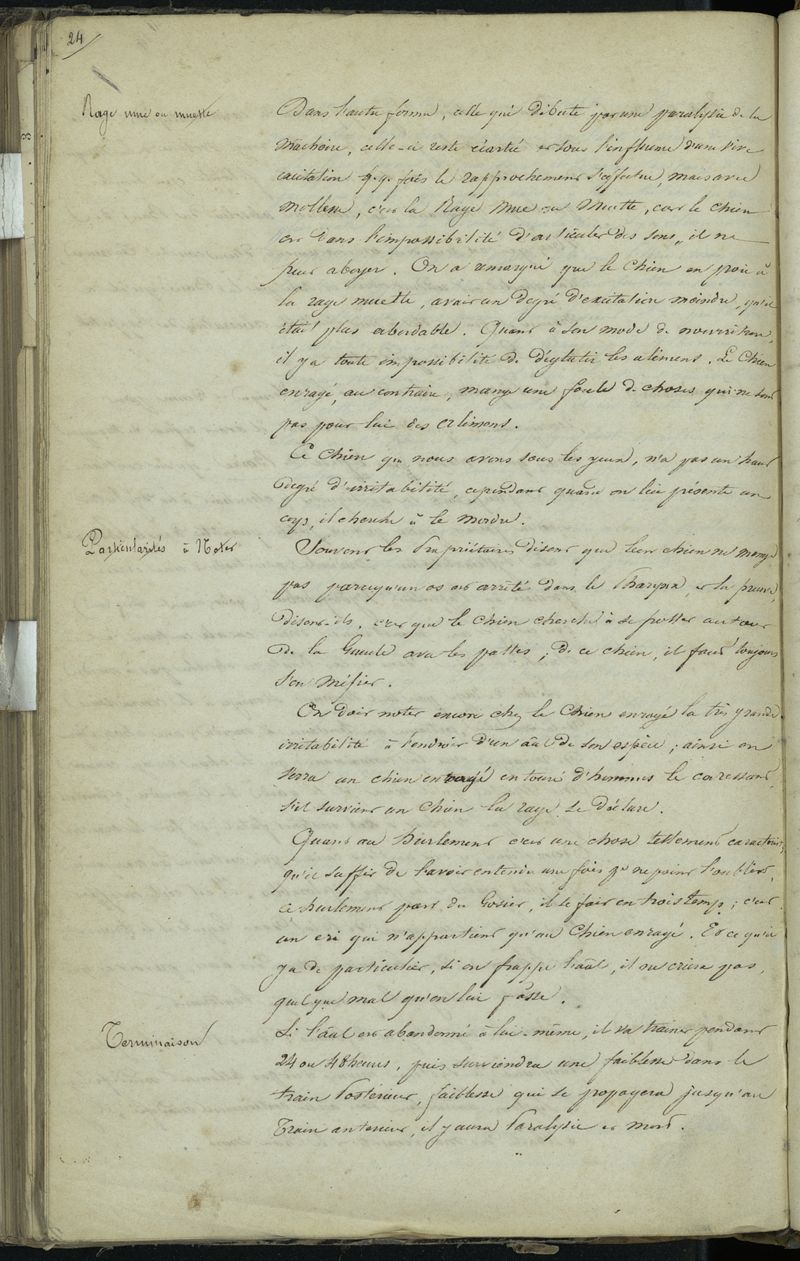 24
Rage mue ou muette
Dans l'autre forme, celle qui débute par une paralysie de la
machoire, celle-ci reste écartée et sous l'influence d'une vive
excitation qq. fois le rapprochement s'effectue, mais avec
mollesse, c'est la Rage mue ou Muette, car le chien
est dans l'impossibilité d'articuler des sons, il ne
peut aboyer. On a remarqué que le chien en proie à
la rage muette, avait un degré d'excitation moindre, qu'il
était plus abordable. Quant à son mode de nourriture,
il y a toute impossibilité de déglutir les alimens. Le Chien
enragé, au contraire, mange une foule de choses qui ne sont
pas pour lui des alimens.
Ce chien que nous avons sous les yeux, n'a pas un haut
degré d'irritabilité, cependant quand on lui présente un
corps, il cherche à le mordre.
Particularités à Noter
Souvent les Propriétaires disent que leur chien ne mange
pas parcequ'un os est arrêté dans le Pharynx, et la preuve,
disent-ils, c'est que le chien cherche à se frotter autour
de la Gueule avec les pattes; de ce chien, il faut toujours
s'en méfier.
On doit noter encore chez le Chien enragé la très grande
irritabilité à l'endroit d'un aal de son espèce; ainsi on
verra un chien enragé entouré d'hommes le caressant,
s'il survient un Chien la rage se déclare.
Quant au hurlement c'est une chose tellement caractérist.
qu'il suffit de l'avoir entendu une fois pr ne point l'oublier,
ce hurlement part du Gosier, il se fait en trois temps; c'est
un cri qui n'appartient qu'au Chien enragé. Et ce qu'il
y a de particulier, si on frappe l'aal, il ne criera pas,
quelque mal qu'on lui fasse.
Terminaison
Si l'aal est abandonné à lui-même, il va trainer pendant
24 ou 48 heures, puis surviendra une faiblesse dans le
train Postérieur, faiblesse qui se propagera jusqu'au
Train antérieur, il y aura Paralysie et mort.